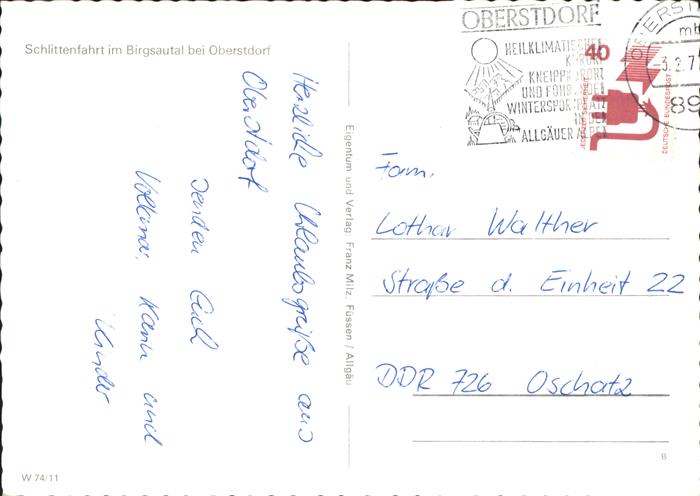 Schlittenfahrt im Birgsautal bei Oberstdorf
Herzliche Urlaubsgrüße aus
Oberstdorf
senden Euch
Volkmar, Karin und
Kinder
W 74/11
Eigentum und Verlag Franz Milz, Füssen / Allgäu
OBERSTDORF
HEILKLIMATISCHER
KURORT
KNEIPPKURORT
UND FÜHRENDER
WINTERSPORTPLATZ
IN DEN
ALLGÄUER ALPEN
40
JEDERZEIT SICHERHEIT
DEUTSCHE BUNDESPOST
-3.2.7
89
Fam.
Lothar Walther
Straße d. Einheit 22
DDR 726 Oschatz
B